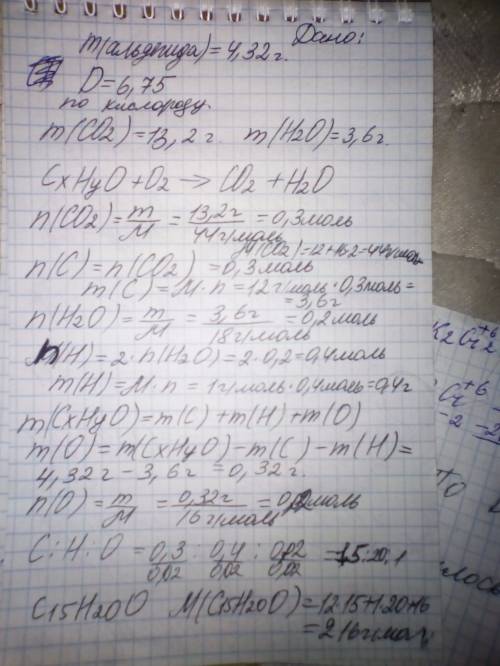 Дано:
m(альдегида)=4,32г.
D=6,75
по кислороду.
m(CO2)=13,2г. m(H2O)=3,6г.
CxHyO+O2→CO2+H2O
n(CO2)=m/M=13,2г/44г/моль=0,3моль
M(CO2)=12+16·2=44г/моль
n(C)=n(CO2)=0,3моль
m(C)=M·n=12г/моль·0,3моль=
=3,6г
n(H2O)=m/M=3,6г/18г/моль=0,2моль
n(H)=2·n(H2O)=2·0,2=0,4моль
m(H)=M·n=1г/моль·0,4моль=0,4г
m(CxHyO)=m(C)+m(H)+m(O)
m(O)=m(CxHyO)-m(C)-m(H)=
4,32г-3,6г=0,32г.
n(O)=m/M=0,32г/16г/моль=0,02моль
C:H:O=0,3/0,02:0,4/0,02:0,02/0,02=15:20:1
C15H20O M(C15H20O)=12·15+1·20+16
=216г/моль
K2Cr2
+6
Cr+6
-2